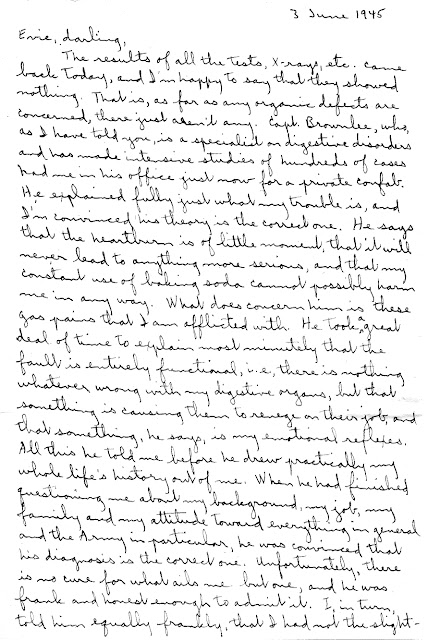 3 June 1945
Evie, darling,
The results of all the tests, X-rays, etc. came
back today, and I'm happy to say that they showed
nothing. That is, as far as any organic defects are
concerned, there just aren't any. Capt. Brownlee, who,
as I have told you, is a specialist on digestive disorders
and has made intensive studies of hundreds of cases
had me in his office just now for a private confab.
He explained fully just what my trouble is, and
I'm convinced his theory is the correct one. He says
that the heartburn is of little moment, that it will
never lead to anything more serious, and that my
constant use of baking soda cannot possibly harm
me in any way. What does concern him is these
gas pains that I am afflicted with. He took a great
deal of time to explain most minutely that the
fault is entirely functional, i.e, there is nothing
whatever wrong with my digestive organs, but that
something is causing them to renege on their job, and
that something, he says, is my emotional reflexes.
All this he told me before he drew practically my
whole life's history out of me. When he had finished
questioning me about my background, my job, my
family and my attitude toward everything in general
and the Army in particular, he was convinced that
his diagnosis is the correct one. Unfortunately, there
is no cure for what ails me but one, and he was
frank and honest enough to admit it. I, in turn,
told him equally frankly, that I had not the slight-